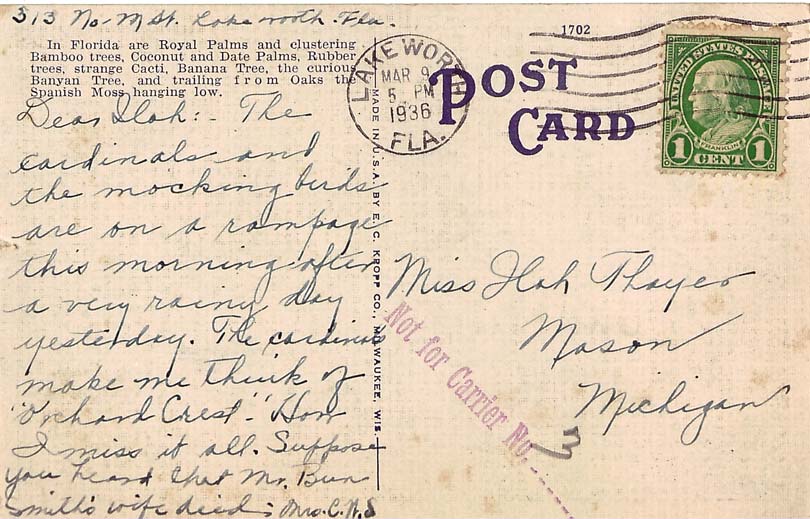 313 No. M St. Lake Worth. Fla.
In Florida are Royal Palms and clustering
Bamboo trees, Coconut and Date Palms, Rubber
trees, strange Cacti, Banana Tree, the curious
Banyan Tree, and trailing from Oaks the
Spanish Moss hanging low.
Dear Ilah:- The
cardinals and
the mocking birds
are on a rampage
this morning after
a very rainy day
yesterday. The cardinals
make me think of
"Orchard Crest". How
I miss it all. Suppose
you heard that Mr. Bun
Smith's wife died. Mrs. C.N.S
MADE IN U.S.A. BY E. C. KROPP CO., MILWAUKEE, WIS.
1702
POST
CARD
LAKE WORTH
MAR 9
5 PM
1936
FLA.
UNITED STATES POSTAGE
FRANKLIN
1 CENT 1
Miss Ilah Thayer
Mason
Michigan
Not for Carrier No. 3